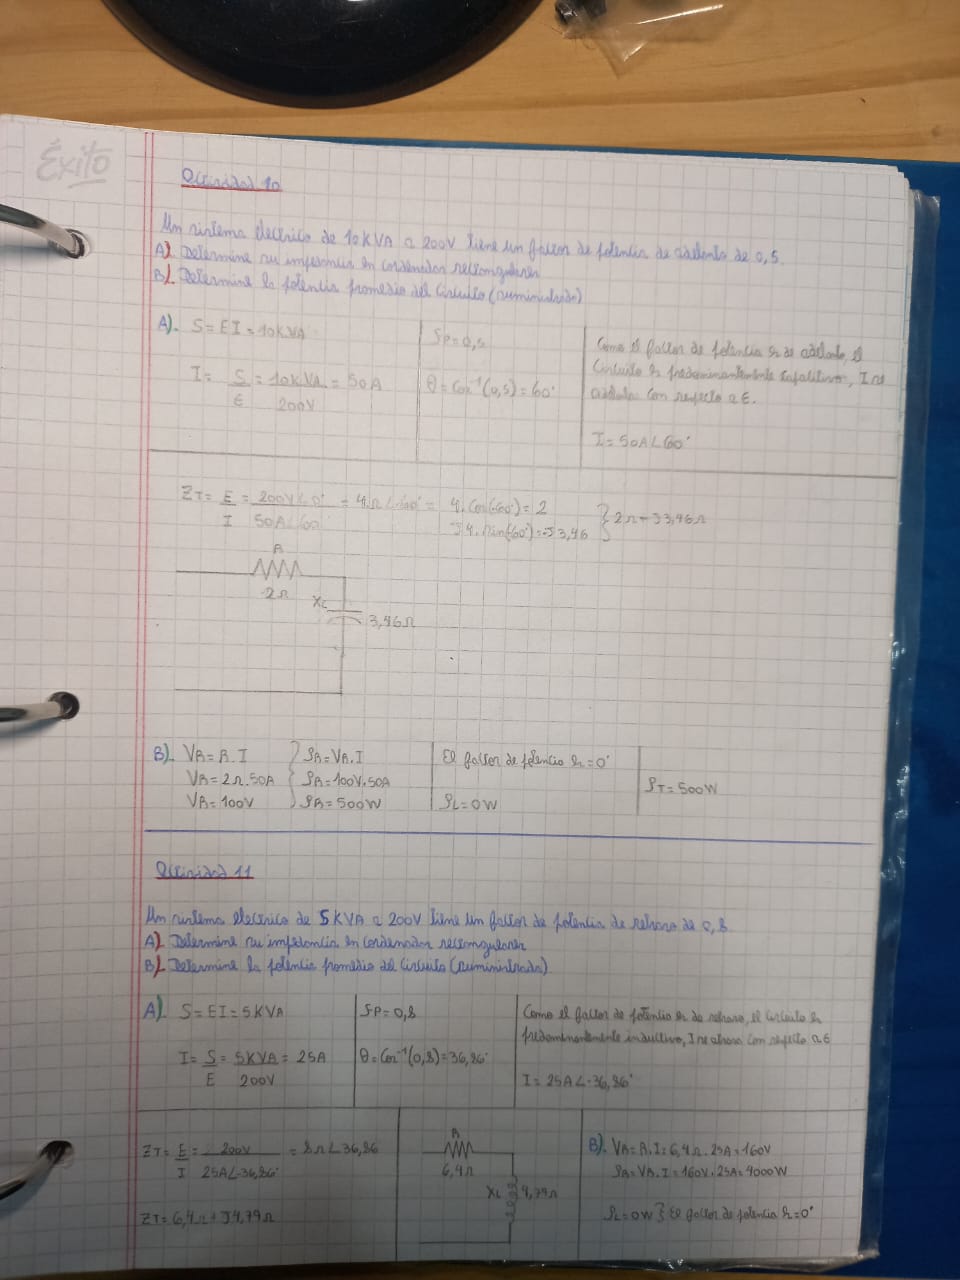 Éxito
Actividad 10
Un sistema electrico de 10KVA a 200V tiene un factor de potencia de adelanto de 0,5.
A). Determine su impedancia en cordenadas rectangulares
B). Determine la potencia promedio del circuito (suministrada)
A). S = EI = 10KVA
I = S/E = 10KVA/200V = 50A
FP = 0,5
θ = Cos⁻¹(0,5) = 60°
Como el factor de potencia es de adelanto, el
circuito es predominantemente capacitivo, I se
adelanta con respecto a E.
I = 50A∠60°
ZT = E/I = 200V∠0°/50A∠60° = 4Ω∠-60° = 4.Cos(-60°) = 2
J4.sin(-60°) = -J3,46 } 2Ω - J3,46Ω
R
2Ω
Xc
3,46Ω
B). VR = R.I
VR = 2Ω.50A
VR = 100V
PR = VR.I
PR = 100V.50A
PR = 500W
El factor de potencia es = 0°
PL = 0W
PT = 500W
Actividad 11
Un sistema electrico de 5KVA a 200V tiene un factor de potencia de retraso de 0,8.
A). Determine su impedancia en cordenadas rectangulares
B). Determine la potencia promedio del circuito (suministrada)
A). S = EI = 5KVA
I = S/E = 5KVA/200V = 25A
FP = 0,8
θ = Cos⁻¹(0,8) = 36,86°
Como el factor de potencia es de retraso, el circuito es
predominantemente inductivo, I se atrasa con respecto a E
I = 25A∠-36,86°
ZT = E/I = 200V/25A∠-36,86° = 8Ω∠36,86
ZT = 6,4Ω + J4,79Ω
R
6,4Ω
XL
4,79Ω
B). VR = R.I = 6,4Ω.25A = 160V
PR = VR.I = 160V.25A = 4000W
PL = 0W } El factor de potencia es = 0°